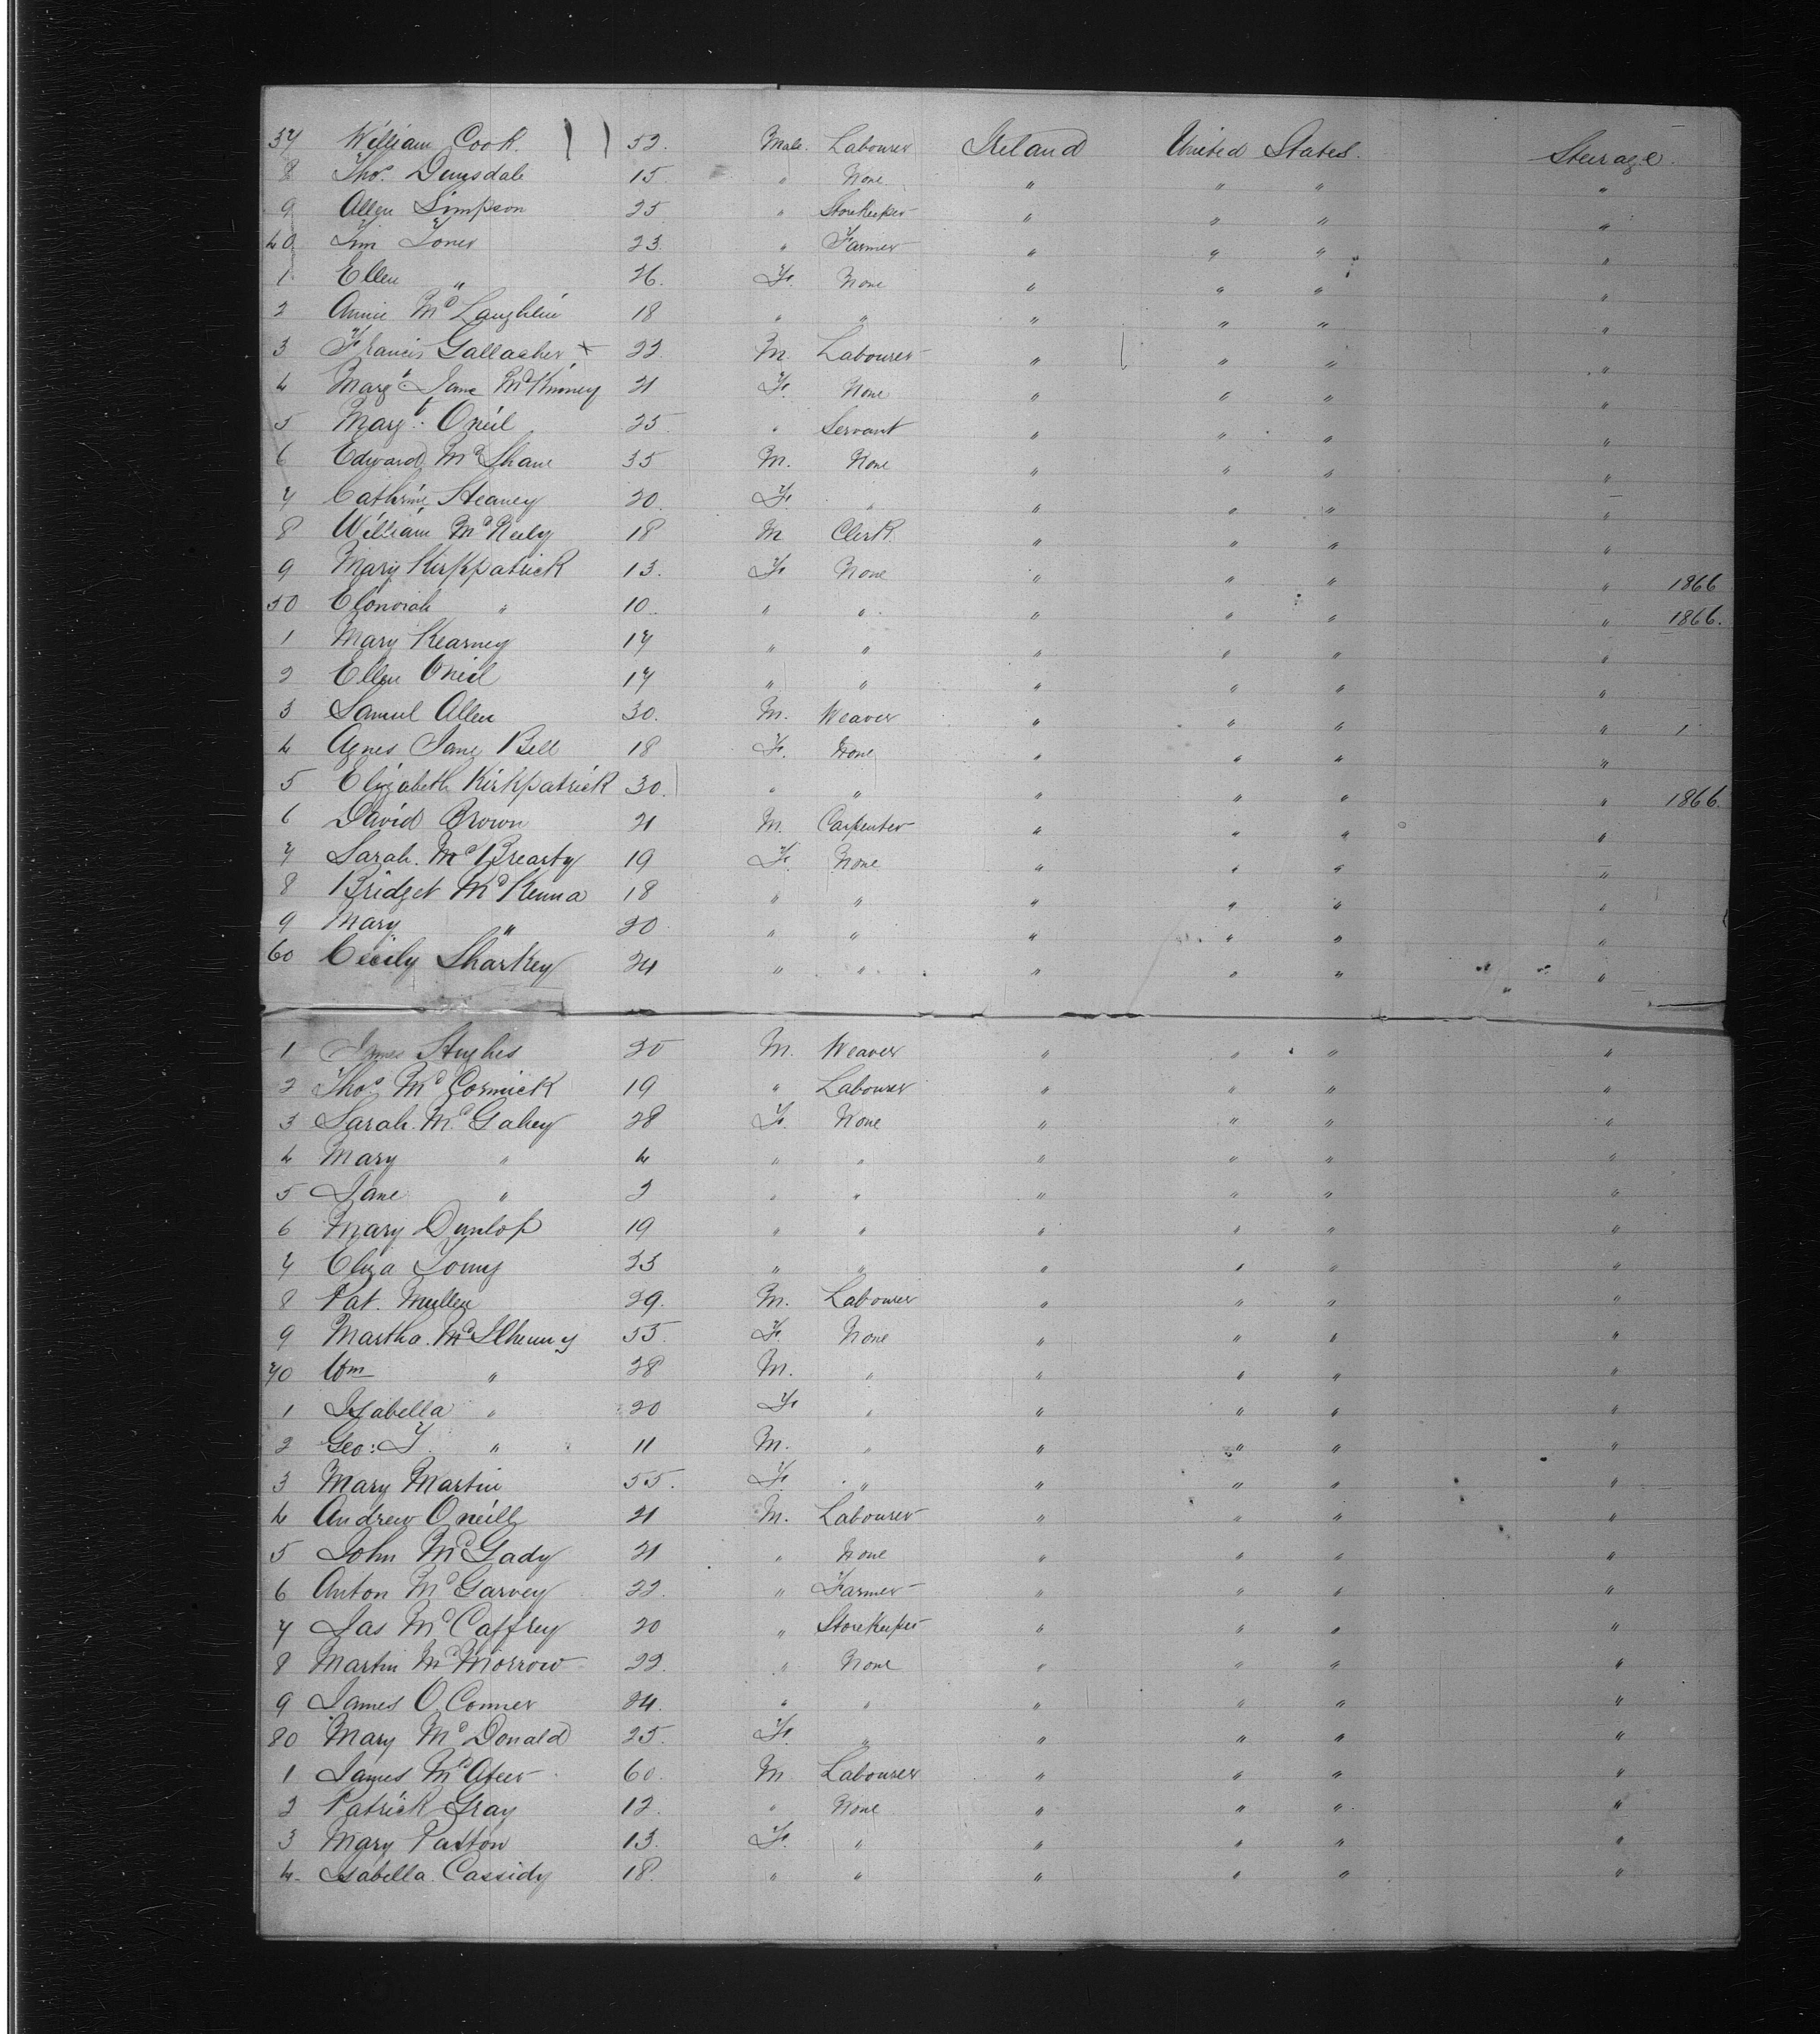 37 William Cook. 52. Male. Labourer Ireland United States. Steerage.
8 Thos. Dunsdale 15. " None " " " "
9 Allen Simpson 25 " Storekeeper " " " "
40 Jim Jones 23 " Farmer " " " "
1 Ellen " 26. F. None " " " "
2 Annie McLaughlin 18 " " " " " "
3 Francis Gallagher x 22. M. Labourer " " " "
4 Margt Jane McKinney 21 F. None " " " "
5 Margt. Oneil 25. " Servant " " " "
6 Edward McShane 35 M. None " " " "
7 Cathrine Heaney 20. F. " " " " "
8 William McNeely 18 M Clerk " " " "
9 Mary Kirkpatrick 13. F. None " " " " 1866
50 Elonorah " 10. " " " " " " 1866.
1 Mary Kearney 17 " " " " " "
2 Ellen Oneil 17 " " " " " "
3 Samuel Allen 30. M. Weaver " " " " 1
4 Agnes Jane Bell 18 F. None " " " "
5 Elizabeth Kirkpatrick 30. " " " " " " 1866.
6 David Brown 21 M. Carpenter " " " "
7 Sarah. McBrearty 19 F. None " " " "
8 Bridget McKenna 18 " " " " " "
9 Mary " 20 " " " " " "
60 Cecily Sharkey 24 " " " " " "
1 James Hughes 20 M. Weaver " " " "
2 Thos McCormick 19 " Labourer " " " "
3 Sarah. McGahey 28 F. None " " " "
4 Mary " 4 " " " " " "
5 Jane " 2 " " " " " "
6 Mary Dunlop 19 " " " " " "
7 Eliza Young 23 " " " " " "
8 Pat. Mullen 29. M. Labourer " " " "
9 Martha. McIlhenny 55. F. None " " " "
70 Wm " 28 M. " " " " "
1 Isabella " 20 F. " " " " "
2 Geo: T. " 11 M. " " " " "
3 Mary Martin 55. F. " " " " "
4 Andrew Oneill 21 M. Labourer " " " "
5 John McGady 21 " None " " " "
6 Anton McGarvey 22. " Farmer " " " "
7 Jas McCaffrey 20 " Storekeeper " " " "
8 Martin McMorrow 22. " None " " " "
9 James O.Conner 24. " " " " " "
80 Mary McDonald 25. F. " " " " "
1 James McAteer 60. M. Labourer " " " "
2 Patrick Gray 12. " None " " " "
3 Mary Patton 13. F. " " " " "
4 Isabella. Cassidy 18. " " " " " "